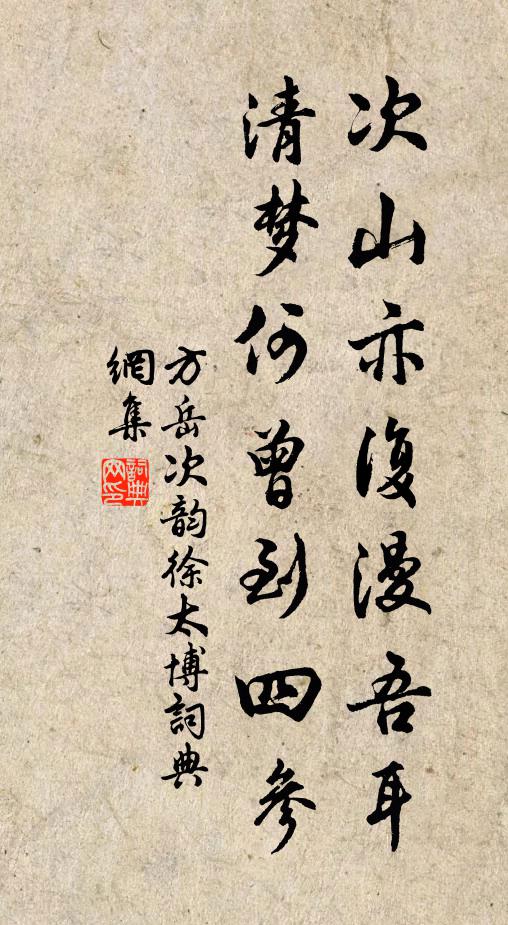 次山亦復漫吾耳
清梦何曾到四參
方岳次韵徐太博詞典
網集
詞典网印